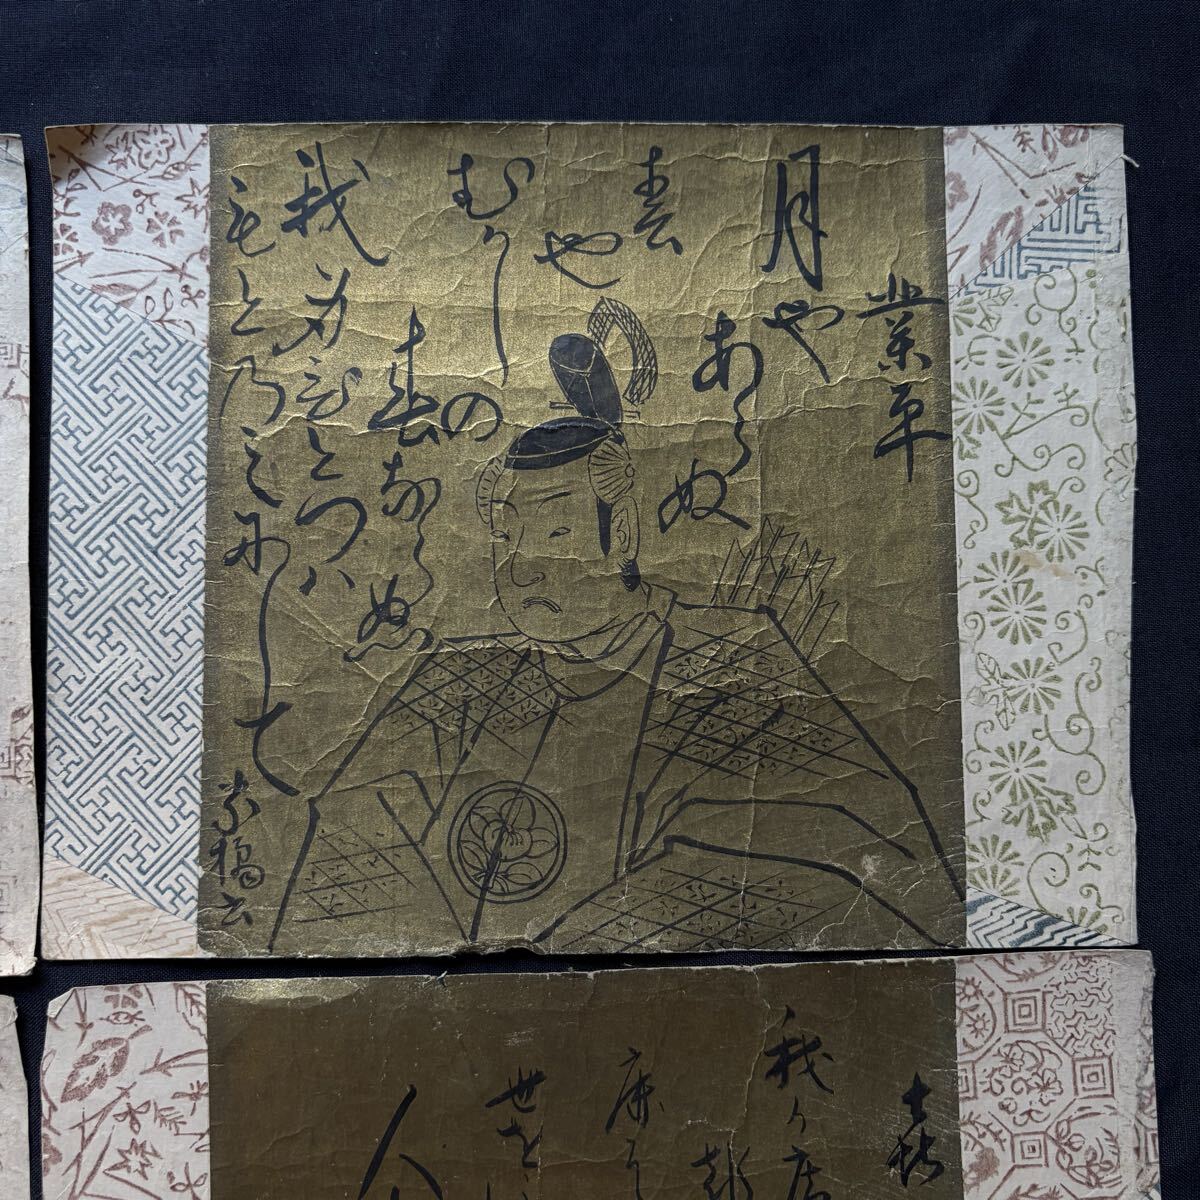 業平
月や
あらぬ
春
や
むかし
の
春ならぬ
我身ひとつハ
もとの身にして
喜
我が庵
都
世を
人